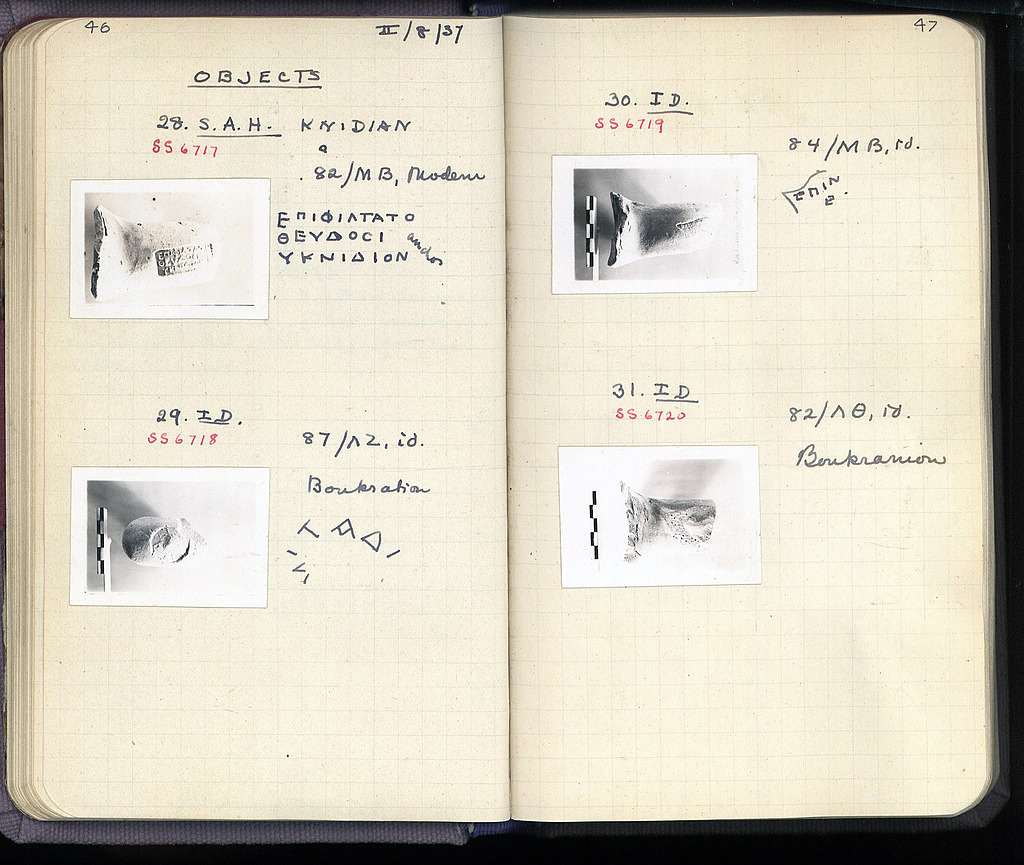 46
II/8/37
OBJECTS
28. S.A.H. KNIDIAN
SS 6717
82/MB, Modern
ΕΠΙΦΙΛΤΑΤΟ
ΘΕΥΔΟCΙ
ΥΚΝΙΔΙΟΝ
29. ID.
SS 6718
87/ΛΖ, id.
Boukration
47
30. ID.
SS 6719
84/MB, id.
ΕΠΙΝ
Ε
31. ID
SS 6720
82/ΛΘ, id.
Boukranion